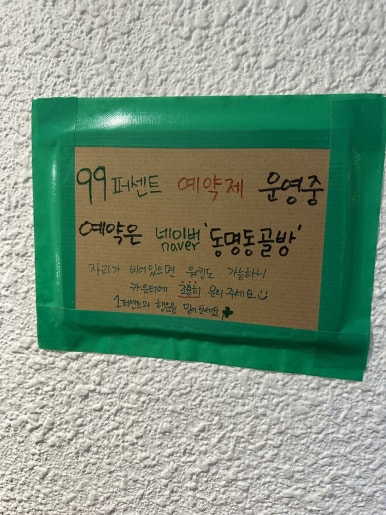 99퍼센트 예약제 운영중
예약은 네이버 naver '동명동골방'
자리가 비어있으면 워킹도 가능하니
카운터에 조용히 문의주세요
1퍼센트의 행운을 믿어보세요